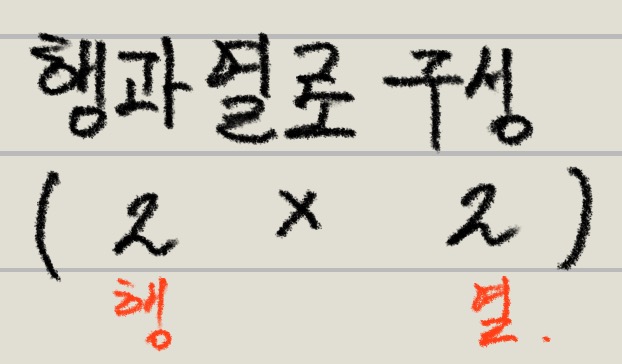 행과 열로 구성
( 2 × 2 )
행 열.